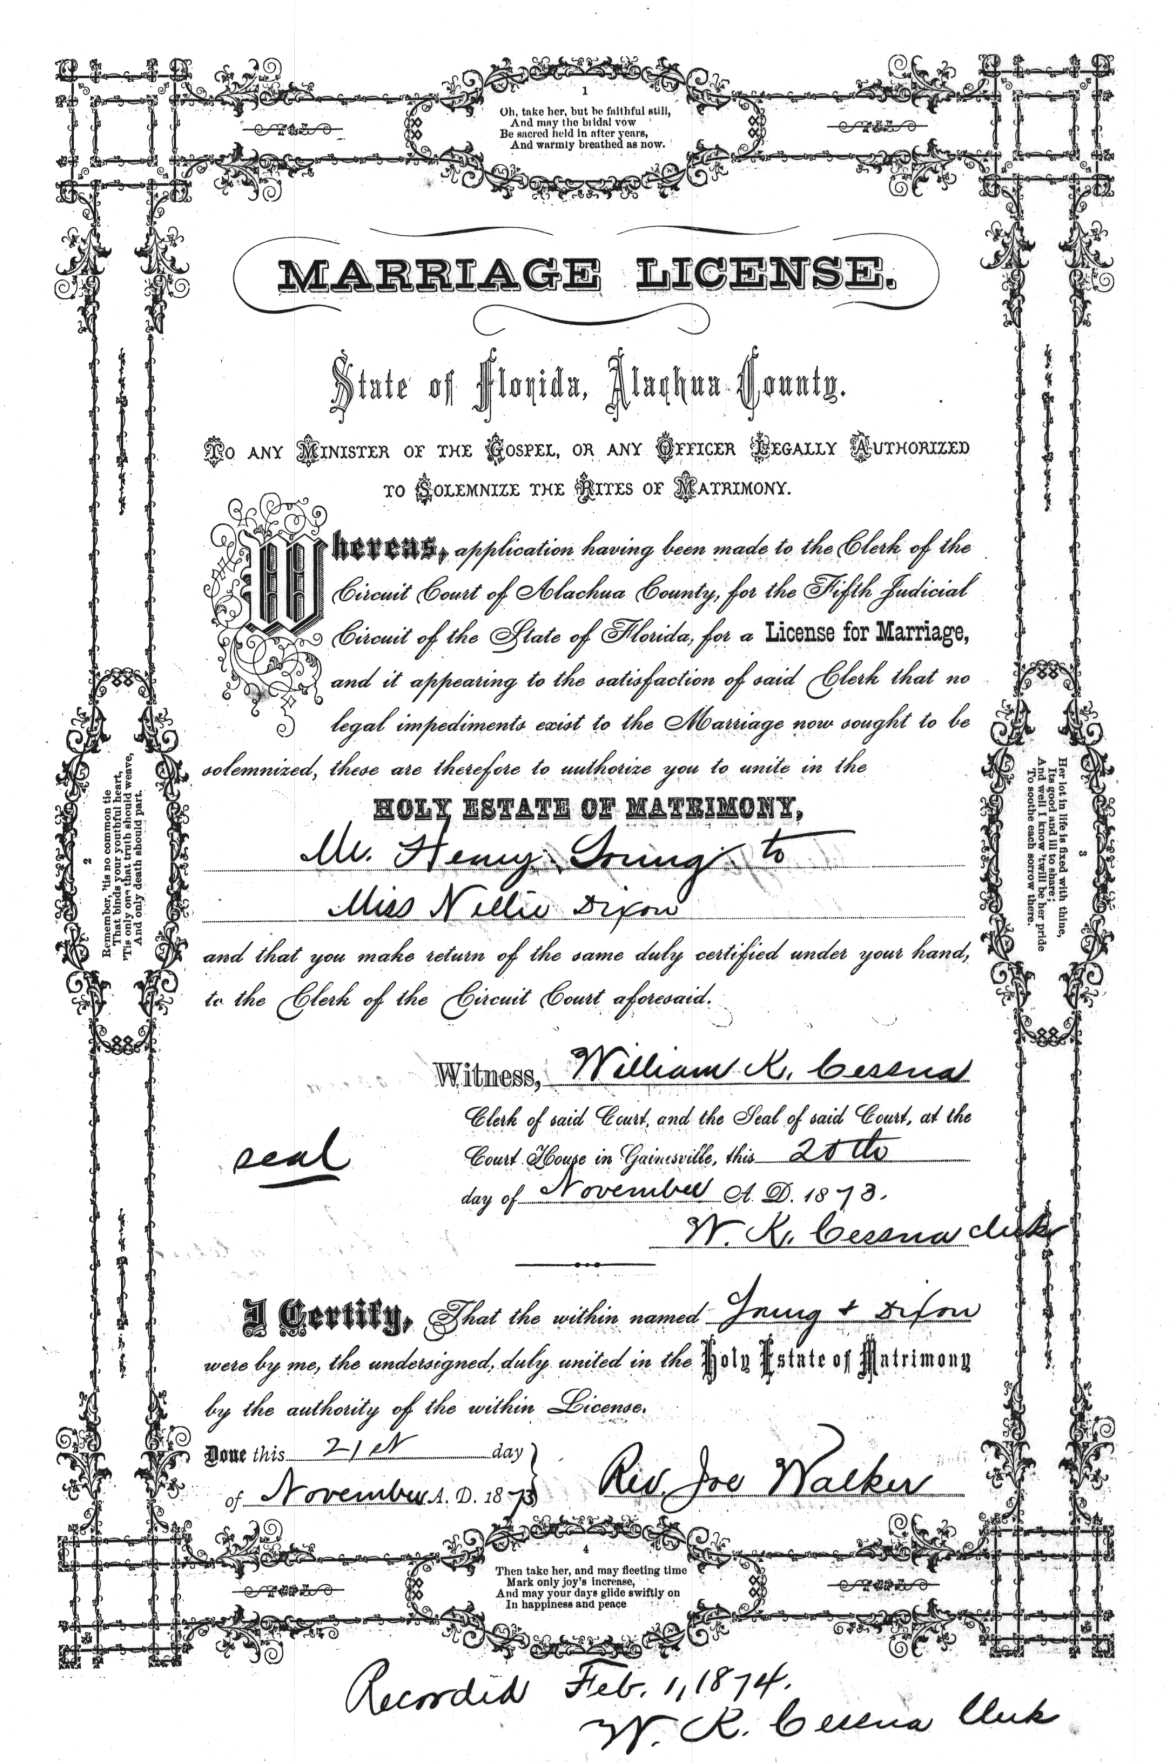 1
Oh, take her, but be faithful still,
And may the bridal vow
Be sacred held in after years,
And warmly breathed as now.
MARRIAGE LICENSE.
State of Florida, Alachua County.
TO ANY MINISTER OF THE GOSPEL, OR ANY OFFICER LEGALLY AUTHORIZED
TO SOLEMNIZE THE RITES OF MATRIMONY.
Whereas, application having been made to the Clerk of the
Circuit Court of Alachua County, for the Fifth Judicial
Circuit of the State of Florida, for a License for Marriage,
and it appearing to the satisfaction of said Clerk that no
legal impediments exist to the Marriage now sought to be
solemnized, these are therefore to authorize you to unite in the
HOLY ESTATE OF MATRIMONY,
Mr. Henry Young to
Miss Nellie Dixon
and that you make return of the same duly certified under your hand,
to the Clerk of the Circuit Court aforesaid.
2
Remember, 'tis no common tie
That binds your youthful heart,
'Tis only one that truth should weave,
And only death should part.
3
Her lot in life is fixed with thine,
Its good and ill to share;
And well I know 'twill be her pride
To soothe each sorrow there.
Witness, William K. Cessna
Clerk of said Court, and the Seal of said Court, at the
seal
Court House in Gainesville, this 20th
day of November A. D. 1873.
W. K. Cessna Clerk
I Certify, That the within named Young & Dixon
were by me, the undersigned, duly united in the Holy Estate of Matrimony
by the authority of the within License.
Done this 21st day
of November A. D. 1873
Rev. Joe Walker
4
Then take her, and may fleeting time
Mark only joy's increase,
And may your days glide swiftly on
In happiness and peace
Recorded Feb. 1, 1874.
W. K. Cessna Clerk